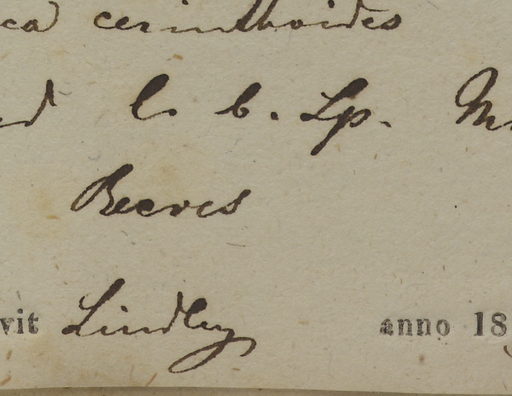 ca cerinthoides
d C. b. Sp. M
Reeves
vit Lindley anno 18